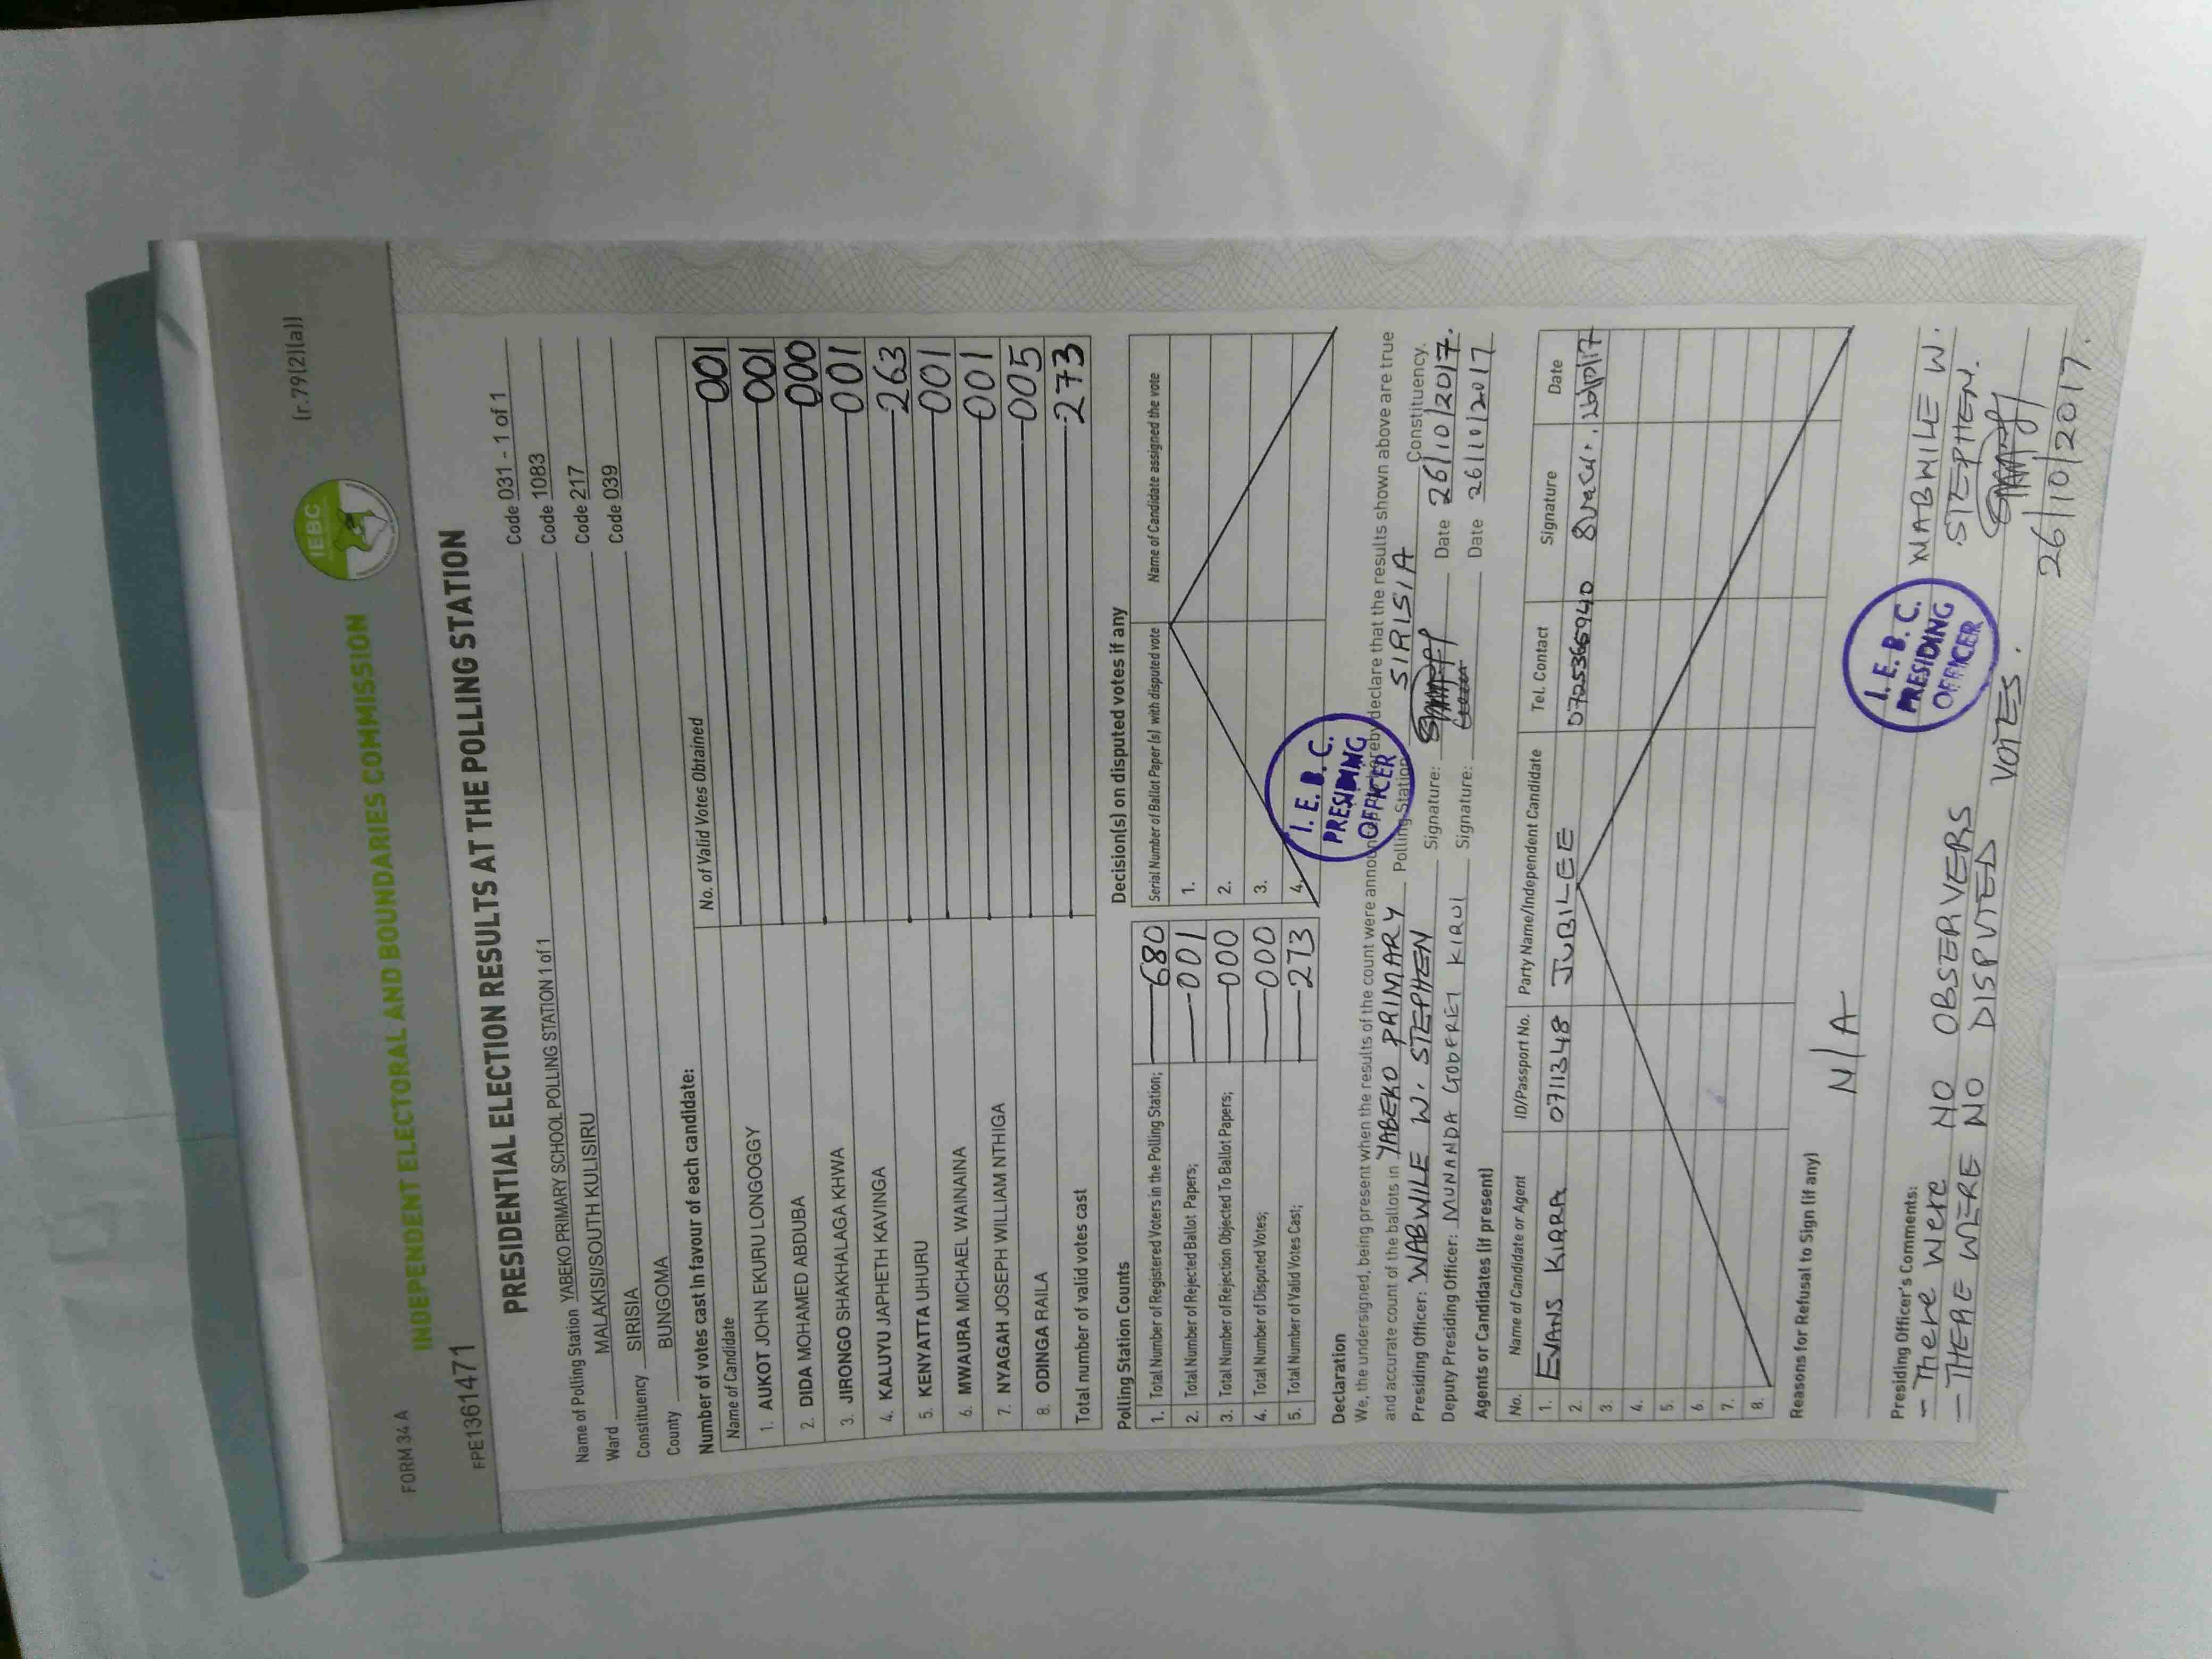 FORM 34 A
(r.79(2)(a))
IEBC
INDEPENDENT ELECTORAL AND BOUNDARIES COMMISSION
FPE1361471
PRESIDENTIAL ELECTION RESULTS AT THE POLLING STATION
Name of Polling Station YABEKO PRIMARY SCHOOL POLLING STATION 1 of 1 Code 031 - 1 of 1
Ward MALAKISI/SOUTH KULISIRU Code 1083
Constituency SIRISIA Code 217
County BUNGOMA Code 039
Number of votes cast in favour of each candidate:
Name of Candidate No. of Valid Votes Obtained
1. AUKOT JOHN EKURU LONGOGGY 001
2. DIDA MOHAMED ABDUBA 001
3. JIRONGO SHAKHALAGA KHWA 000
4. KALUYU JAPHETH KAVINGA 001
5. KENYATTA UHURU 263
6. MWAURA MICHAEL WAINAINA 001
7. NYAGAH JOSEPH WILLIAM NTHIGA 001
8. ODINGA RAILA 005
Total number of valid votes cast 273
Polling Station Counts
1. Total Number of Registered Voters in the Polling Station; 680
2. Total Number of Rejected Ballot Papers; 001
3. Total Number of Rejection Objected To Ballot Papers; 000
4. Total Number of Disputed Votes; 000
5. Total Number of Valid Votes Cast; 273
Decision(s) on disputed votes if any
Serial Number of Ballot Paper (s) with disputed vote Name of Candidate assigned the vote
1.
2.
3.
4.
I. E. B. C.
PRESIDING
OFFICER
Declaration
We, the undersigned, being present when the results of the count were announced, hereby declare that the results shown above are true
and accurate count of the ballots in YABEKO PRIMARY Polling Station SIRISIA Constituency.
Presiding Officer: WABWILE W. STEPHEN Signature: Date 26/10/2017.
Deputy Presiding Officer: MUNANDA GODFREY KIRUI Signature: Date 26/10/2017
Agents or Candidates (if present)
No. Name of Candidate or Agent ID/Passport No. Party Name/Independent Candidate Tel. Contact Signature Date
1. EVANS KIARA 0711348 JUBILEE 0725366940
2.
3.
4.
5.
6.
7.
8.
Reasons for Refusal to Sign (if any)
N/A
Presiding Officer's Comments:
- There were NO OBSERVERS
- THERE WERE NO DISPUTED VOTES.
I. E. B. C.
PRESIDING
OFFICER
WABWILE W.
STEPHEN.
26/10/2017.